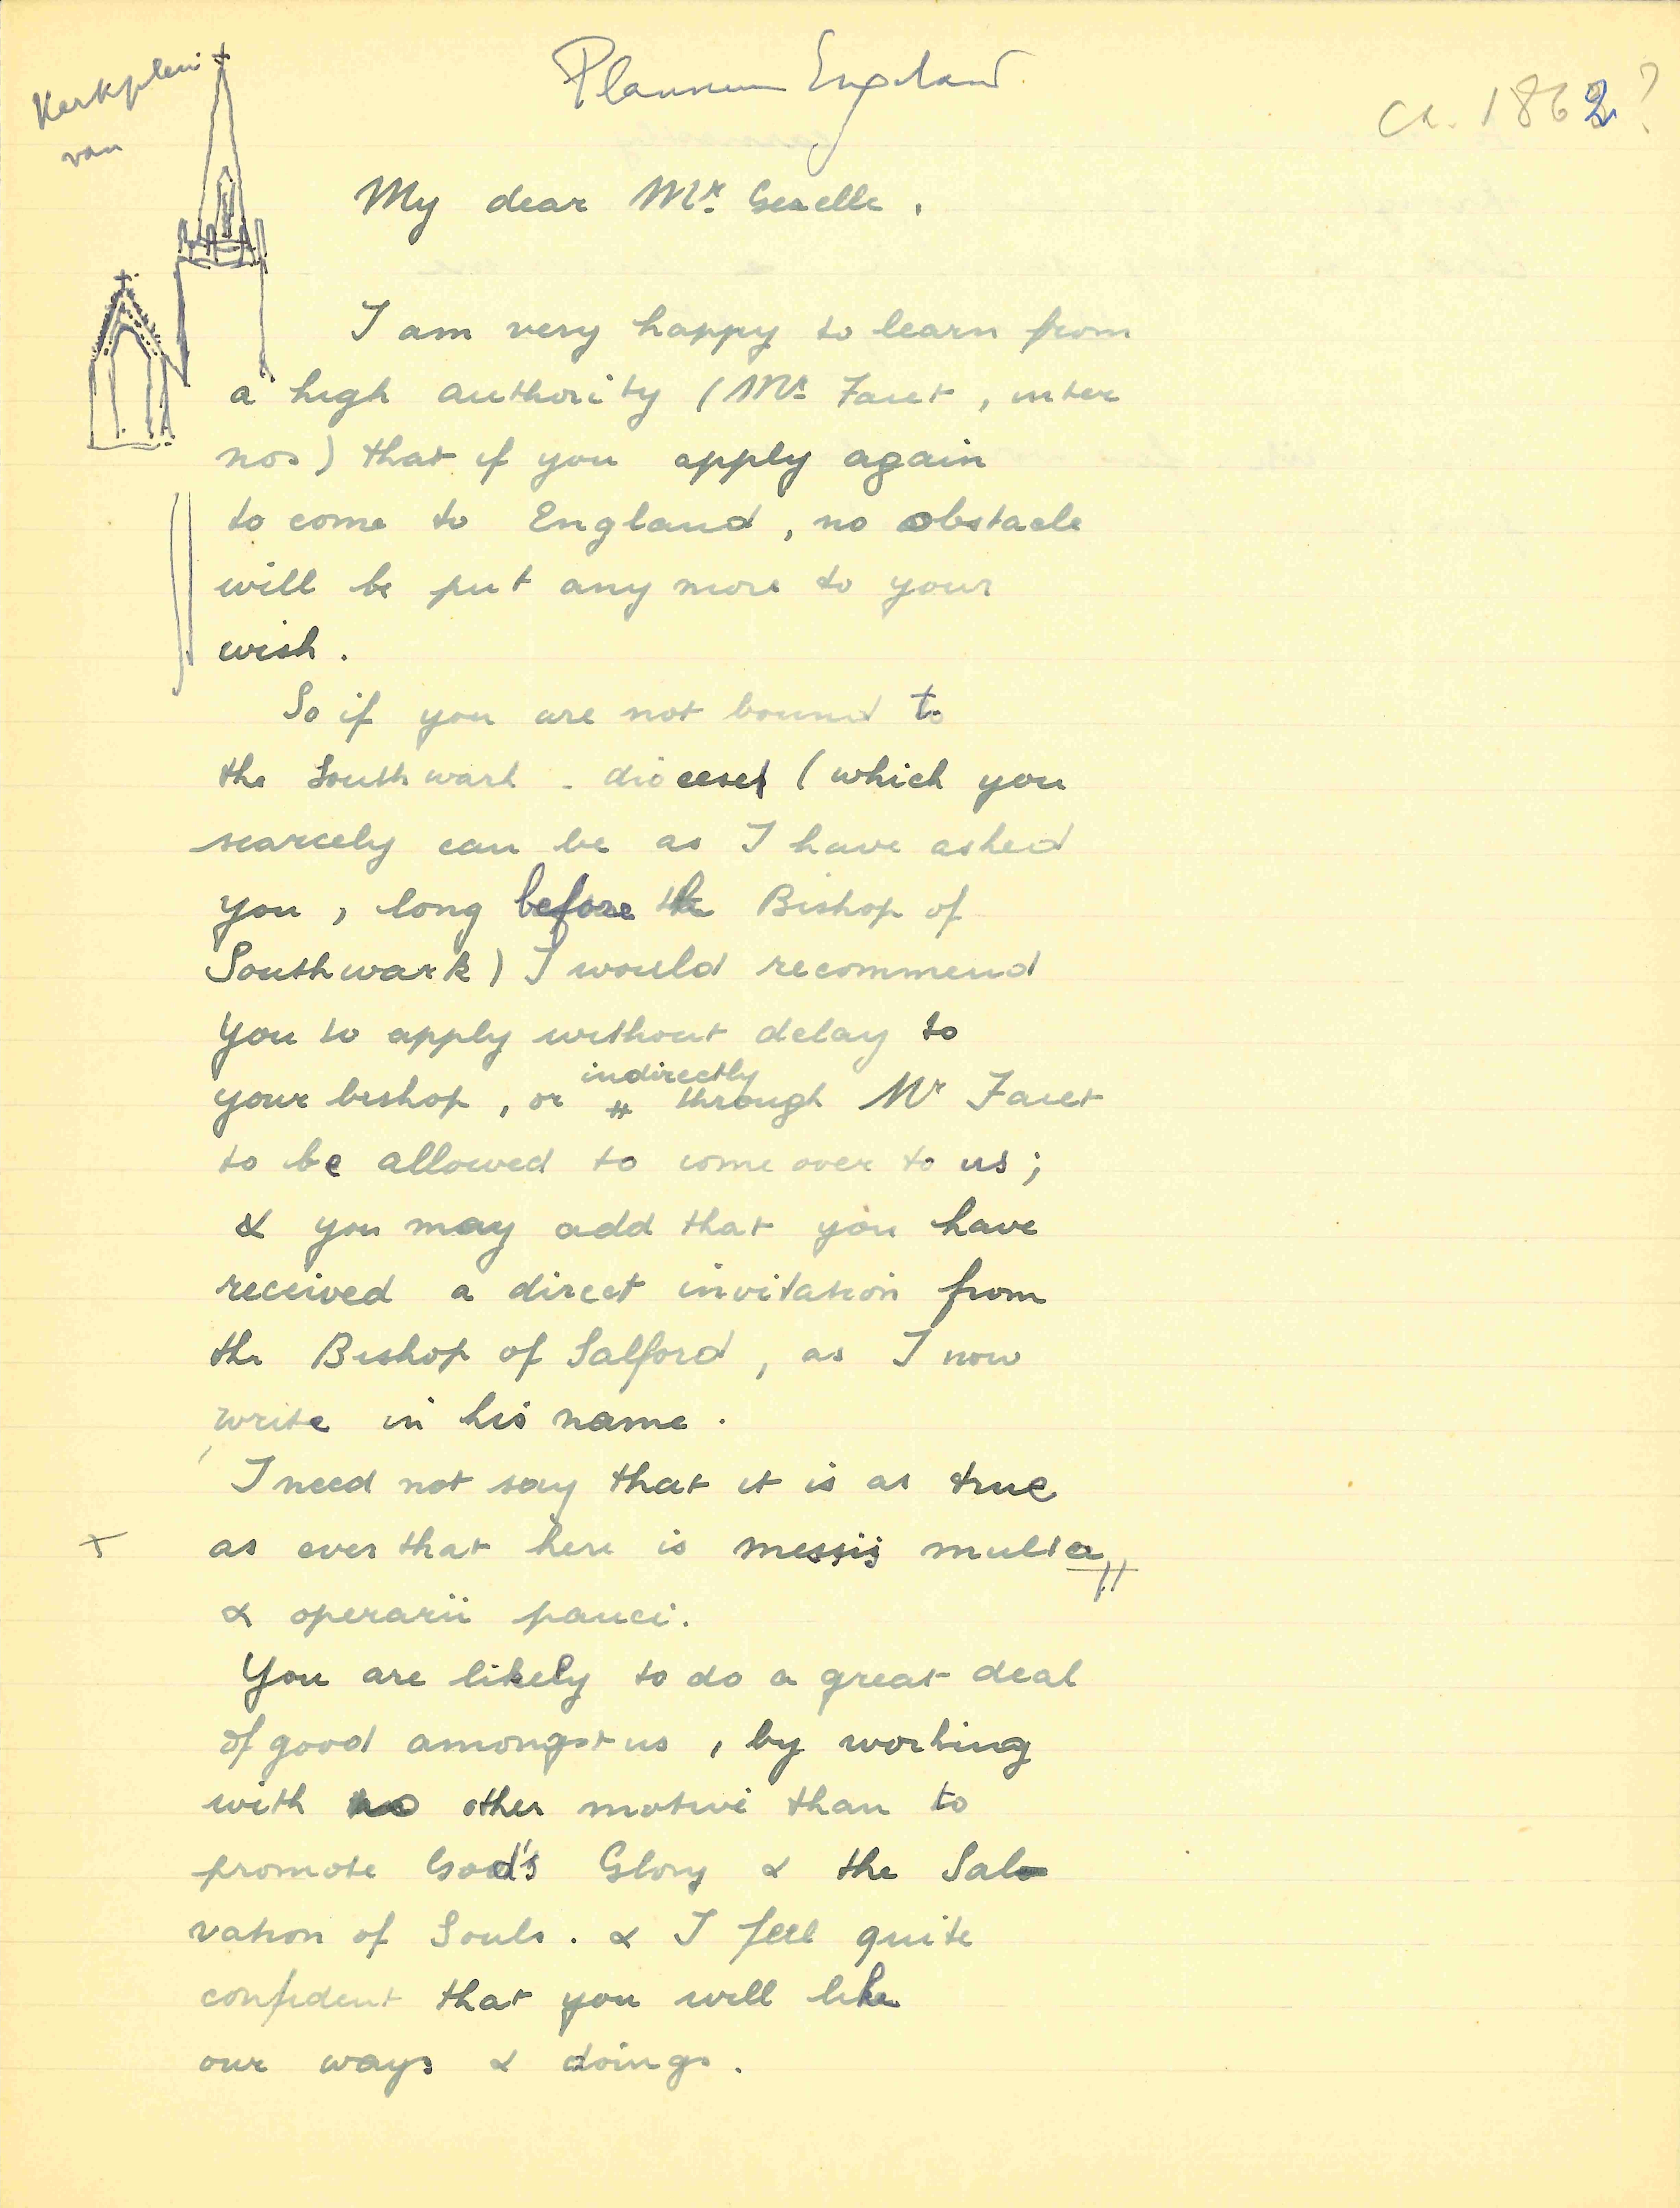 Kerkplein
van
Plannen Engeland
ca. 1862?
My dear Mr. Gezelle.
I am very happy to learn from
a high authority (Mr. Faict, inter
nos) that if you apply again
to come to England, no obstacle
will be put any more to your
wish.
So if you are not bound to
the Southwark - dioceses (which you
scarcely can be as I have asked
you, long before the Bishop of
Southwark) I would recommend
you to apply without delay to
your bishop, or indirectly through Mr Faict
to be allowed to come over to us;
& you may add that you have
received a direct invitation from
the Bishop of Salford, as I now
write in his name.
I need not say that it is as true
as ever that here is messis multa
& operarii pauci.
You are likely to do a great deal
of good amongst us, by working
with no other motive than to
promote God's Glory & the Sal
vation of Souls. & I feel quite
confident that you will like
our ways & doings.